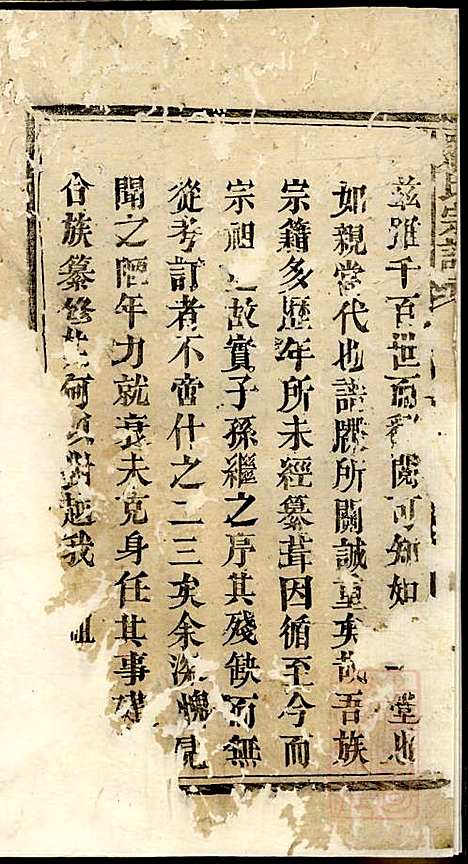 氏宗譜
茲雖千百世而翻閱可知如一堂也
如親當代也譜牒所關誠重矣哉吾族
宗籍多歷年所未經纂葺因循至今而
宗祖之故實子孫繼之序其殘缺而無
從考訂者不啻什之二三矣余深愧見
聞之陋年力就衰未克身任其事
合族纂修何以對起我祖